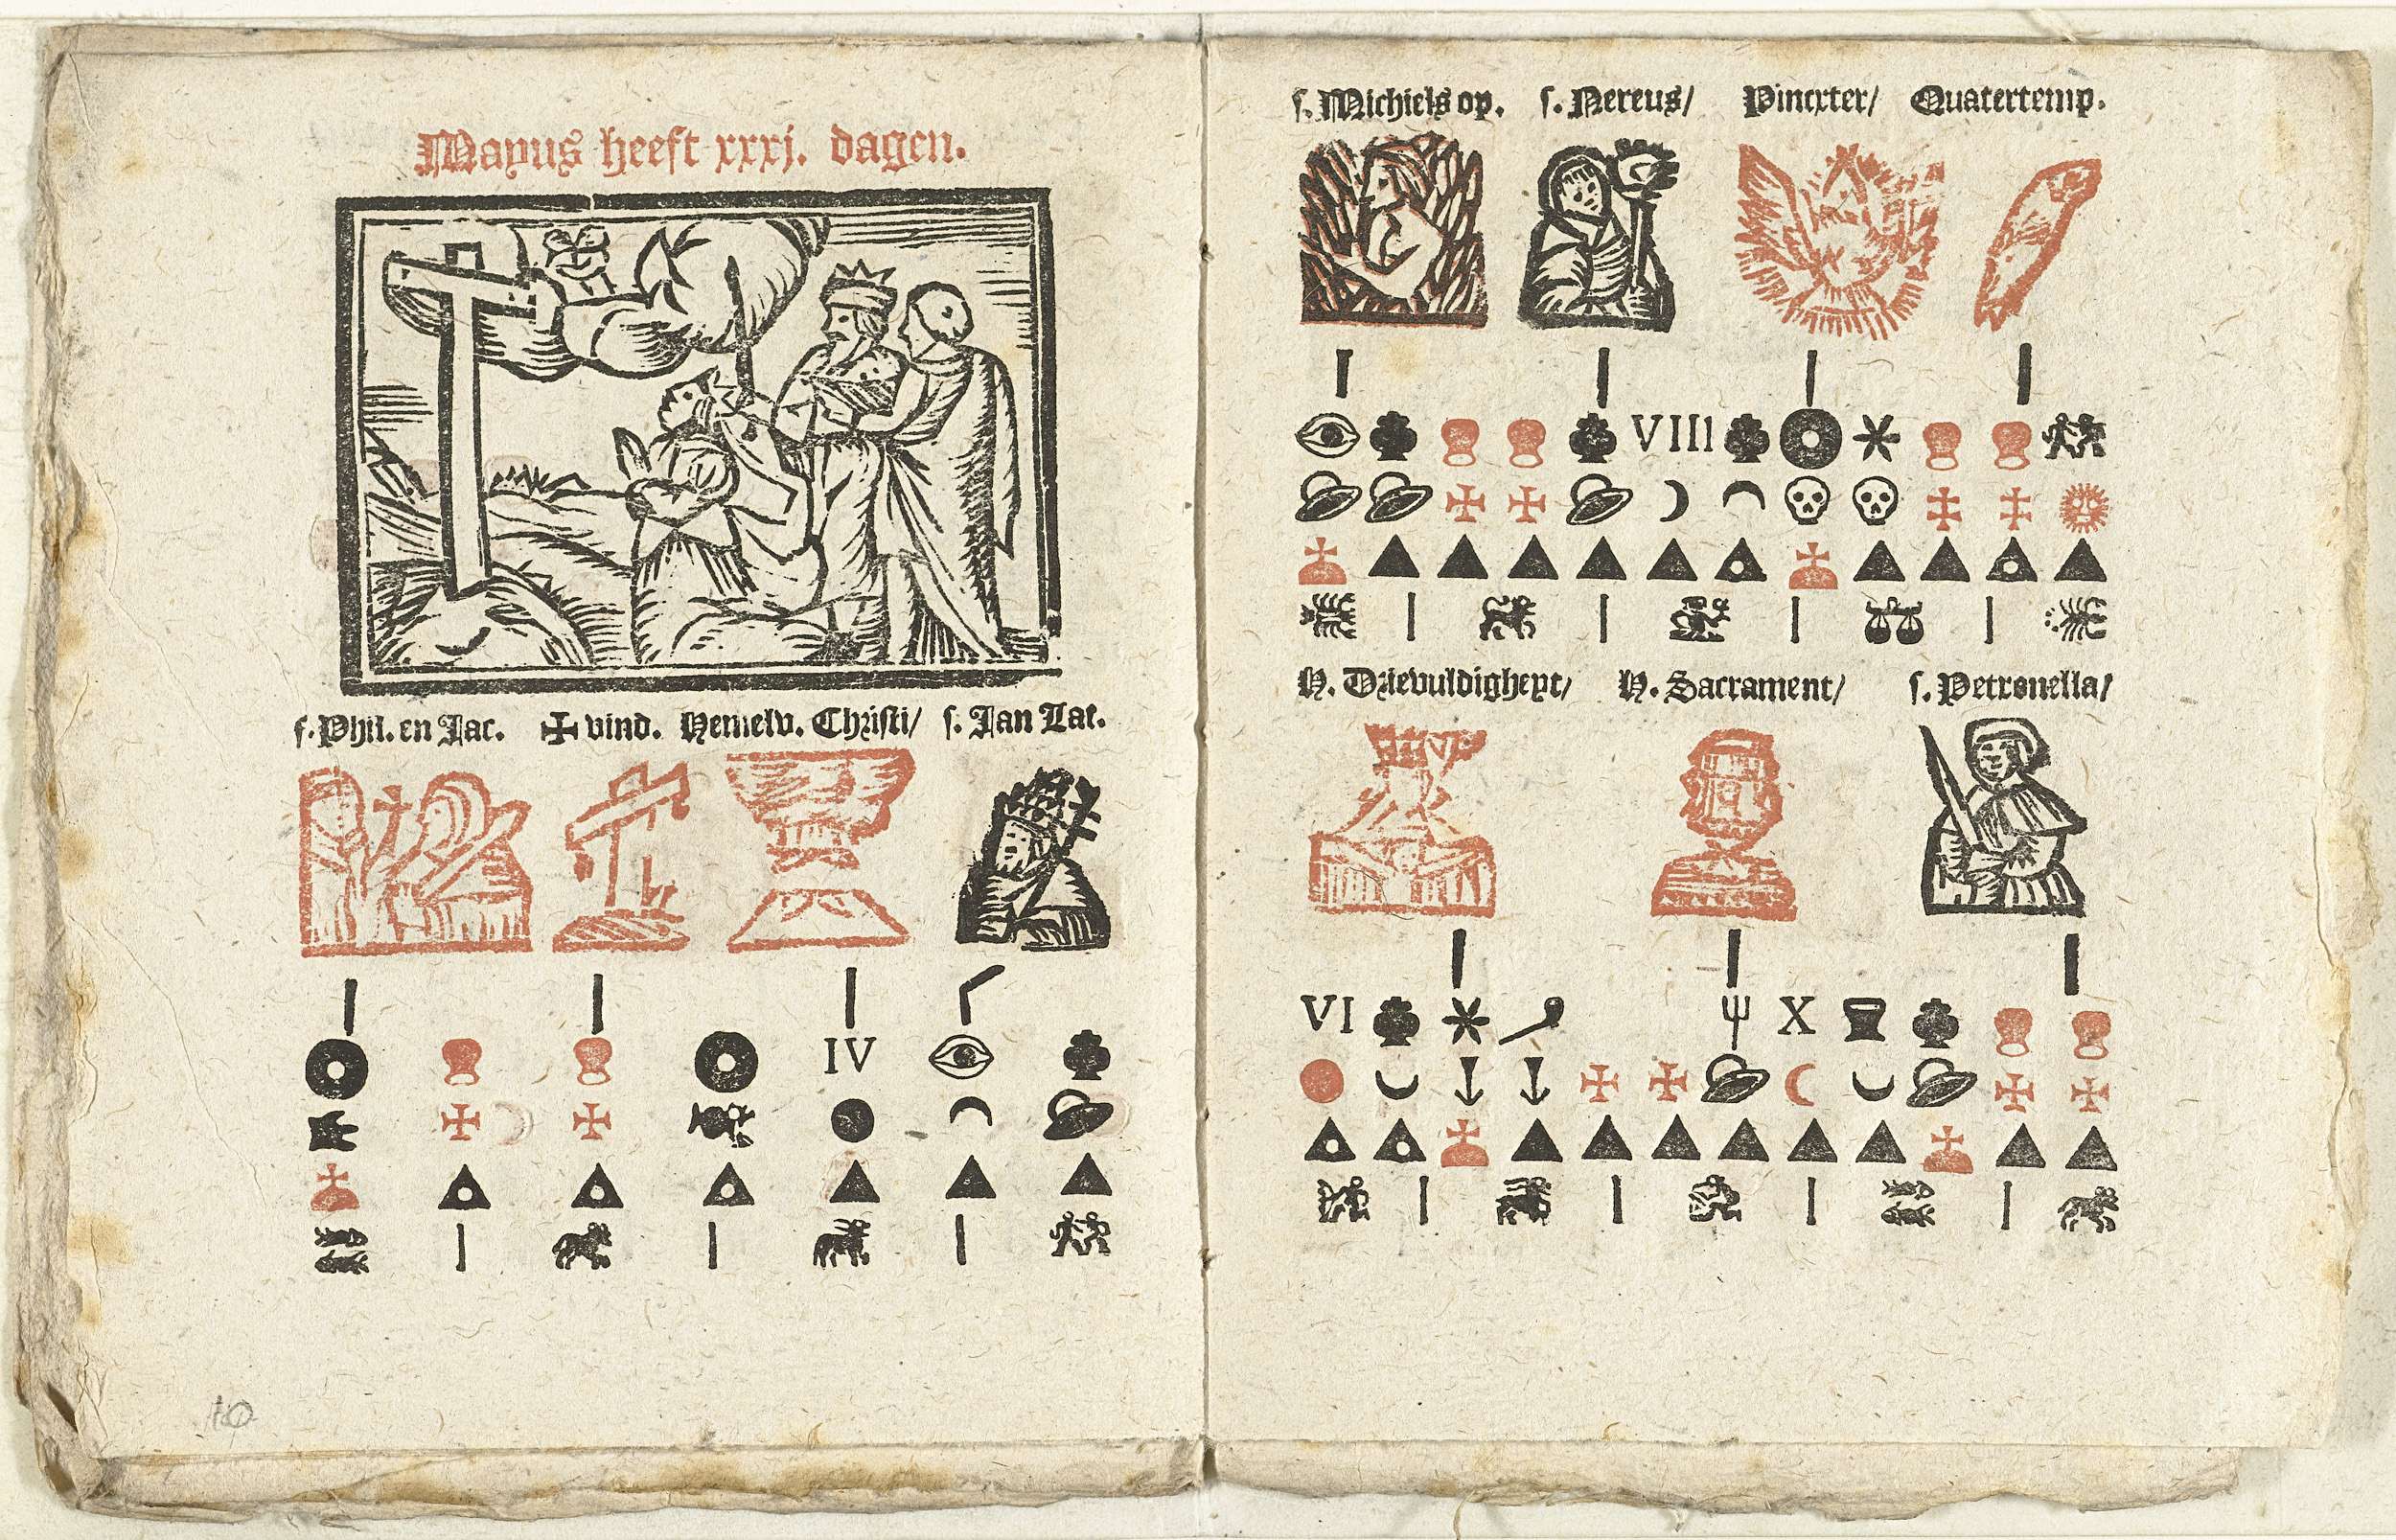 Mayus heeft xxxj. dagen.
s. Phil. en Jac. ✠ vind. Hemelv. Christi/ s. Jan Lat.
IV
s. Michiels op. s. Nereus/ Pincxter/ Quatertemp.
VIII
H. Drievuldigheyt/ H. Sacrament/ s. Petronella/
VI X
10